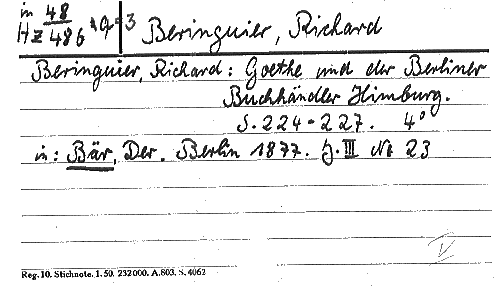 in 48
Hz 486, q=3 Beringuier, Richard
Beringuier, Richard: Goethe und der Berliner
Buchhändler Himburg.
S. 224-227. 4°
in: Bär, Der. Berlin 1877. J. III Nr 23
V
Reg. 10. Stichnote. 1. 50. 232000. A. 803. S. 4062